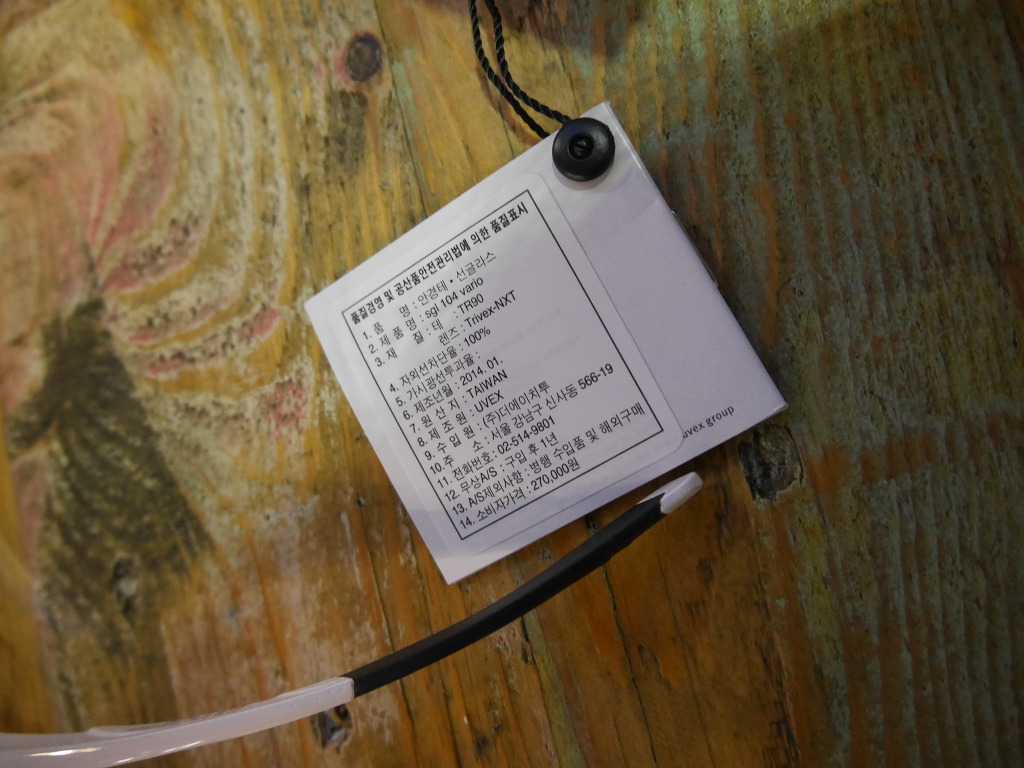 품질경영 및 공산품안전관리법에 의한 품질표시
1. 품 명 : 안경테 • 선글라스
2. 제 품 명 : sgl 104 vario
3. 재 질 : 테 : TR90
렌즈 : Trivex-NXT
4. 자외선차단율 : 100%
5. 가시광선투과율 :
6. 제조년월 : 2014. 01.
7. 원 산 지 : TAIWAN
8. 제 조 원 : UVEX
9. 수 입 원 : (주)더에이치투
10. 주 소 : 서울 강남구 신사동 566-19
11. 전화번호 : 02-514-9801
12. 무상A/S : 구입 후 1년
13. A/S제외사항 : 병행 수입품 및 해외구매
14. 소비자가격 : 270,000원
uvex group